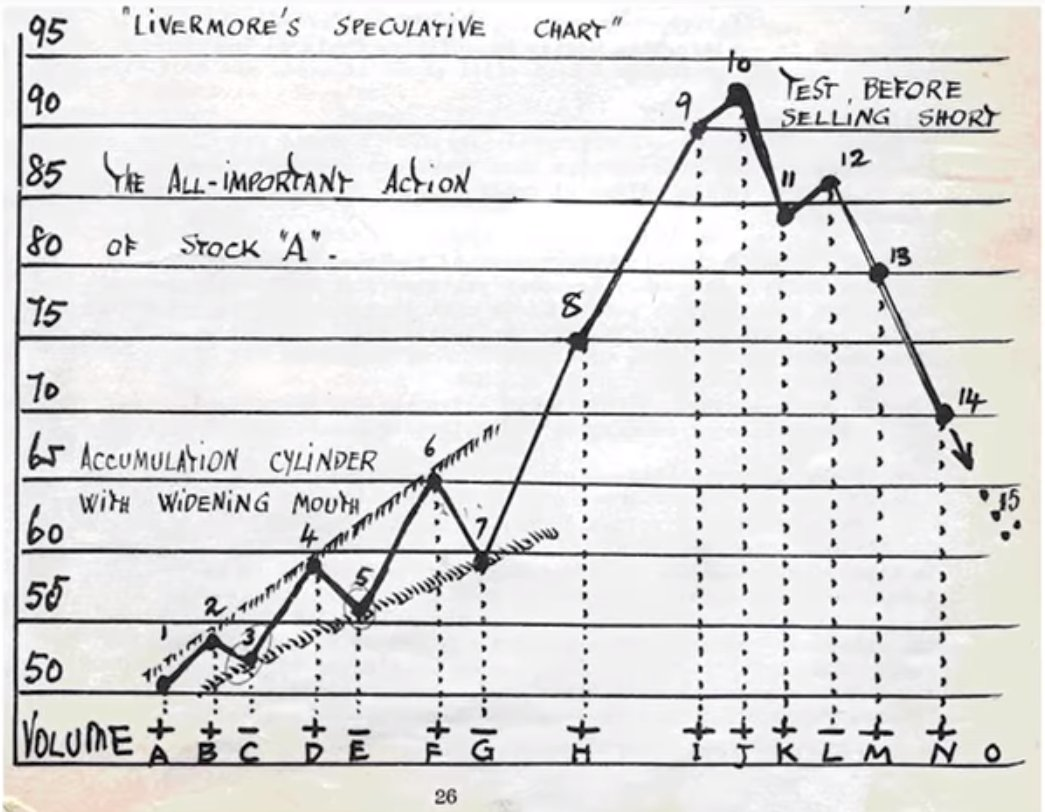 "LIVERMORE'S SPECULATIVE CHART"
95
10
90
9
TEST BEFORE
SELLING SHORT
85
THE ALL-IMPORTANT ACTION
11
12
80
OF STOCK "A".
13
75
8
70
14
65
ACCUMULATION CYLINDER
6
WITH WIDENING MOUTH
15
60
4
7
55
5
2
1
3
50
VOLUME
+ + - + - + - + + + + - + +
A B C D E F G H I J K L M N O
26